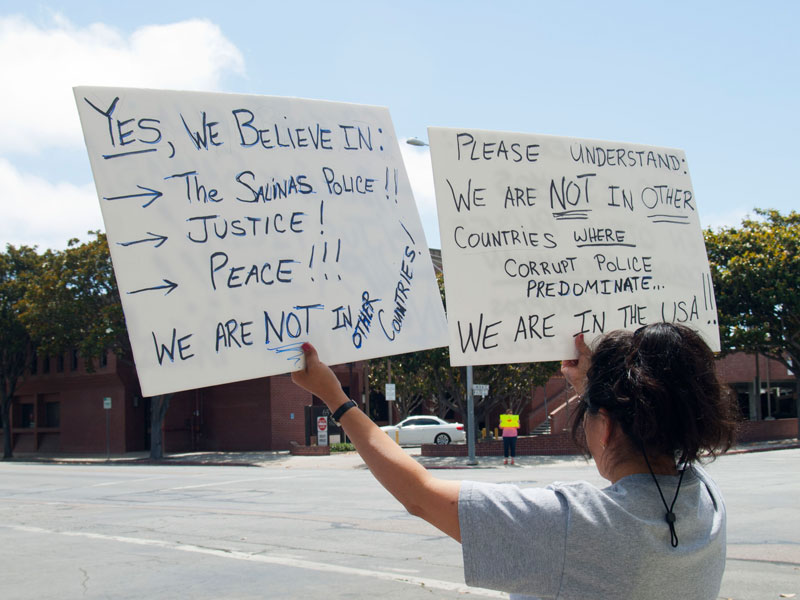 YES, WE BELIEVE IN:
→ The SALINAS POLICE!!
→ JUSTICE!
→ PEACE!!!
WE ARE NOT IN OTHER COUNTRIES!
PLEASE UNDERSTAND:
WE ARE NOT IN OTHER
COUNTRIES WHERE
CORRUPT POLICE
PREDOMINATE...
WE ARE IN THE USA!!